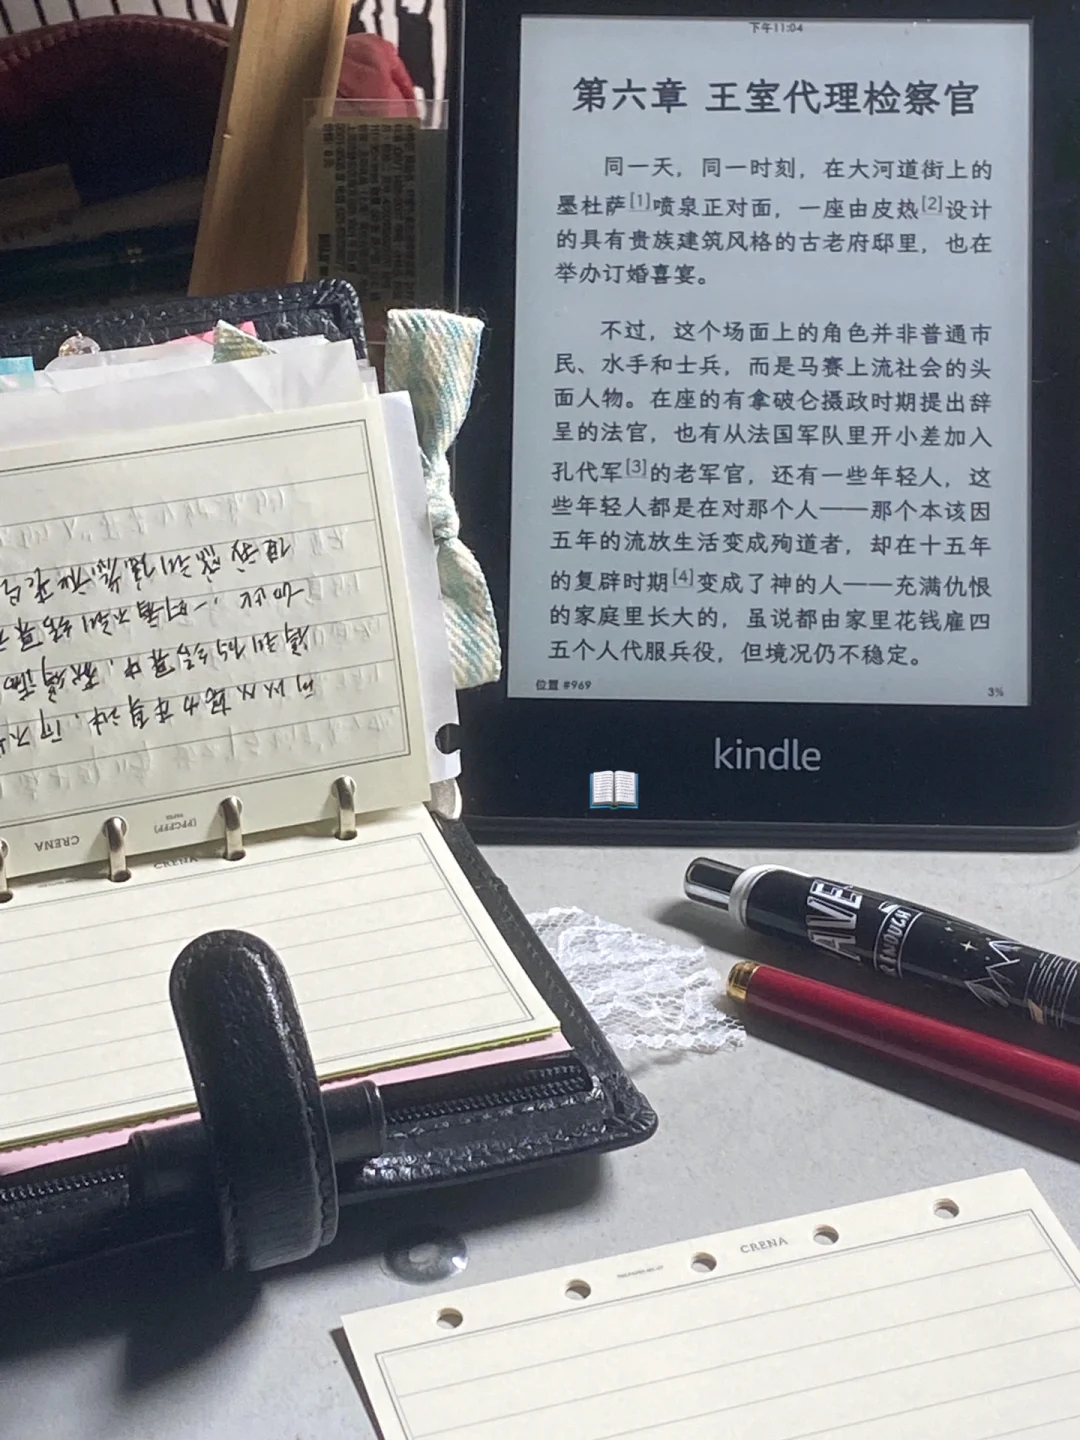 下午11:04
第六章 王室代理检察官
同一天，同一时刻，在大河道街上的
墨杜萨[1]喷泉正对面，一座由皮热[2]设计
的具有贵族建筑风格的古老府邸里，也在
举办订婚喜宴。
不过，这个场面上的角色并非普通市
民、水手和士兵，而是马赛上流社会的头
面人物。在座的有拿破仑摄政时期提出辞
呈的法官，也有从法国军队里开小差加入
孔代军[3]的老军官，还有一些年轻人，这
些年轻人都是在对那个人——那个本该因
五年的流放生活变成殉道者，却在十五年
的复辟时期[4]变成了神的人——充满仇恨
的家庭里长大的，虽说都由家里花钱雇四
五个人代服兵役，但境况仍不稳定。
位置 #969
3%
kindle
CRENA
CRENA
AVE
CRENA